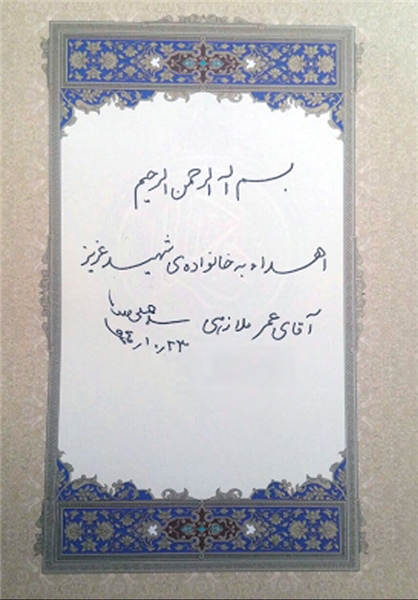 بسم اله الرحمن الرحیم
اهداء به خانواده‌ی شهید عزیز
آقای عمر ملازهی
۲۳ر۱۰ر۹۴